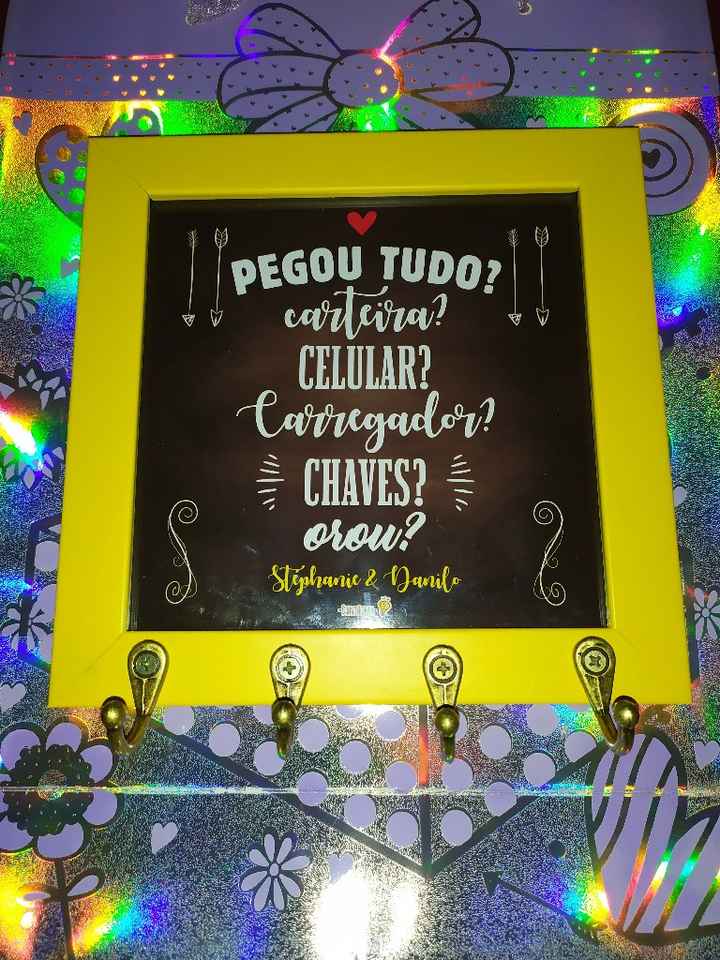 PEGOU TUDO?
carteira?
CELULAR?
Carregador?
CHAVES?
orou?
Stéphanie & Danilo